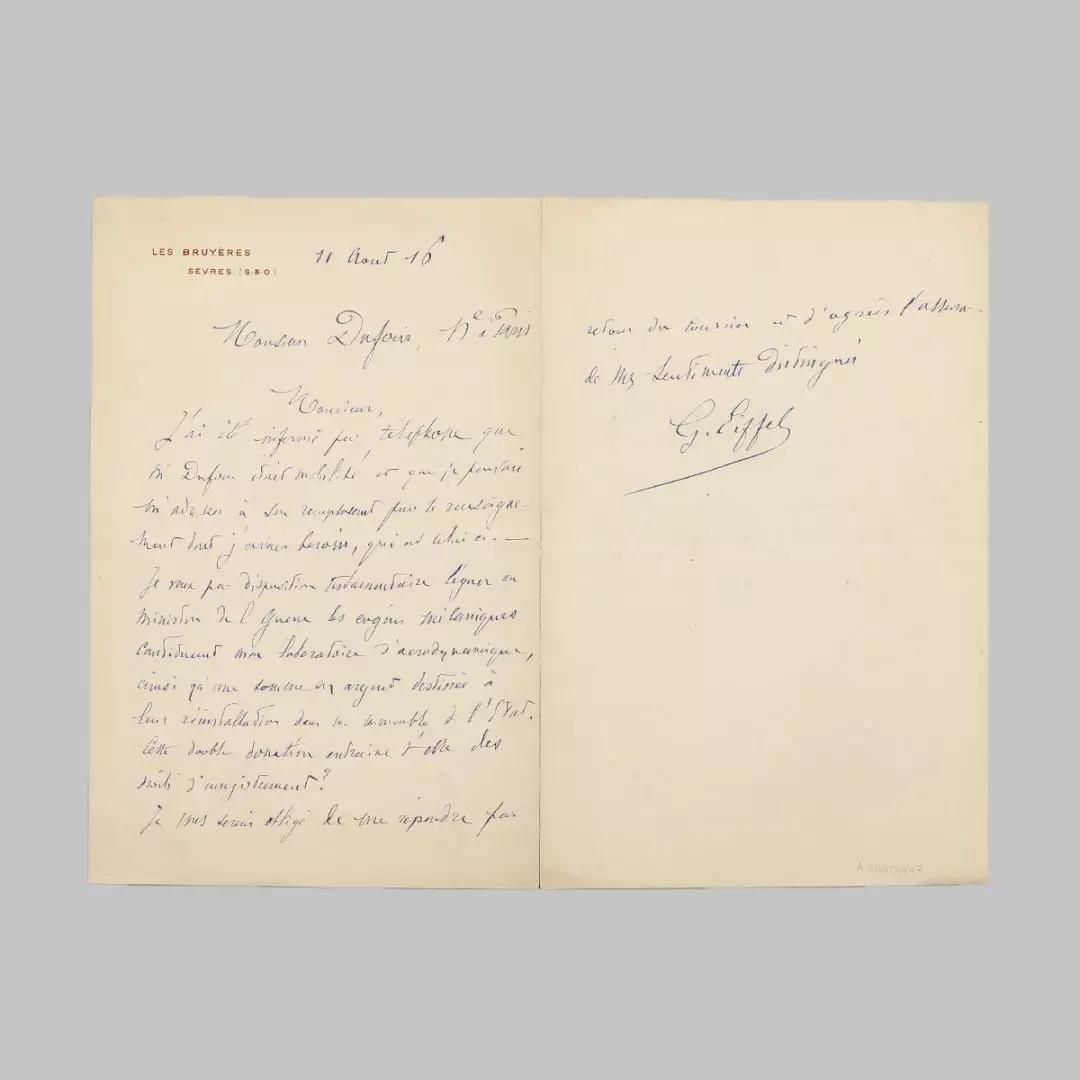 LES BRUYÈRES
SÈVRES. (S & O)
11 Aout 16
Monsieur Dufour, Nre à Paris
Monsieur,
J'ai été informé par téléphone que
M Dufour était mobilisé et que je pouvais
m'adresser à son remplaçant pour le renseigne-
ment dont j'avais besoin, qui est celui ci. —
Je veux par disposition testamentaire léguer au
Ministère de la Guerre les engins mécaniques
constituant mon laboratoire d'aerodynamique,
ainsi qu'une somme en argent destinée à
leur réinstallation dans un immeuble de l'Etat.
Cette double donation entraine t'elle des
droits d'enregistrement?
Je vous serais obligé de me répondre par
retour du courrier et d'agréer l'assura-
de mes sentiments distingués
G. Eiffel